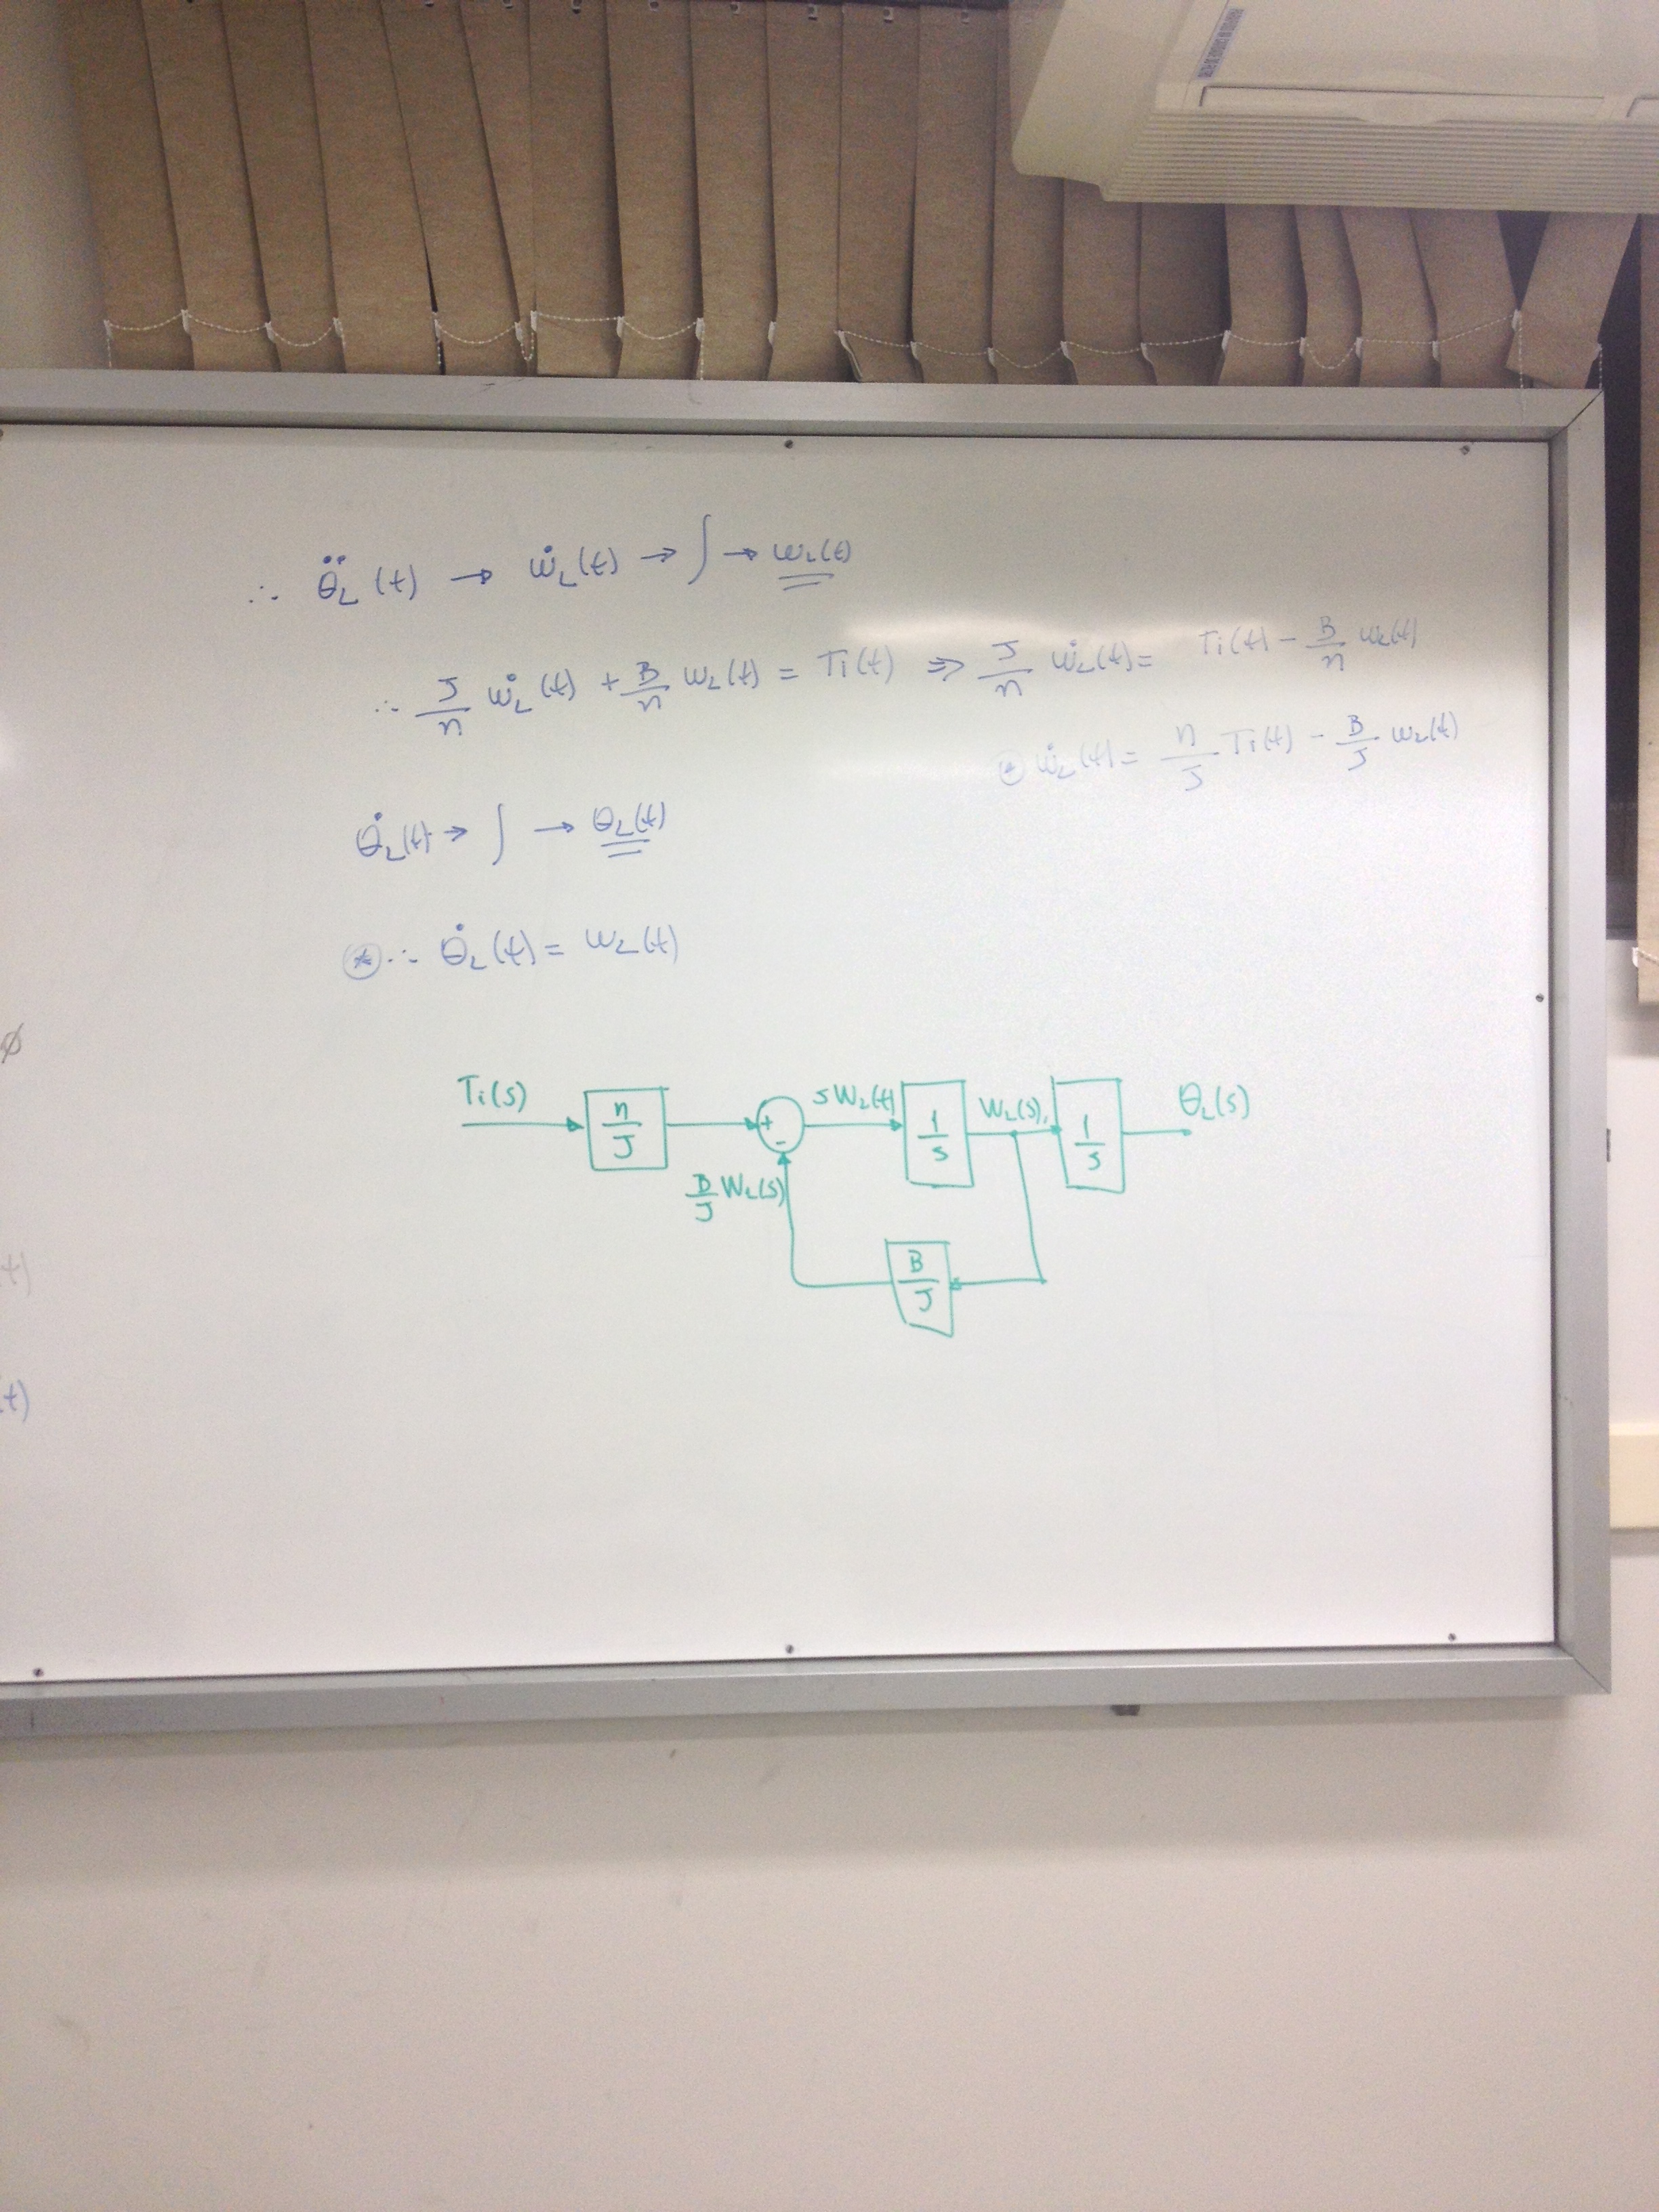 ∴ θ̈L(t) → ẇL(t) → ∫ → wL(t)
∴ J/n ẇL(t) + B/n wL(t) = Ti(t) ⇒ J/n ẇL(t) = Ti(t) - B/n wL(t)
⊛ ẇL(t) = n/J Ti(t) - B/J wL(t)
θ̇L(t) → ∫ → θL(t)
⊛ ∴ θ̇L(t) = wL(t)
Ø
Ti(s) n/J + - sWL(t) 1/s WL(s) 1/s θL(s)
B/J WL(s)
B/J
t)
t)